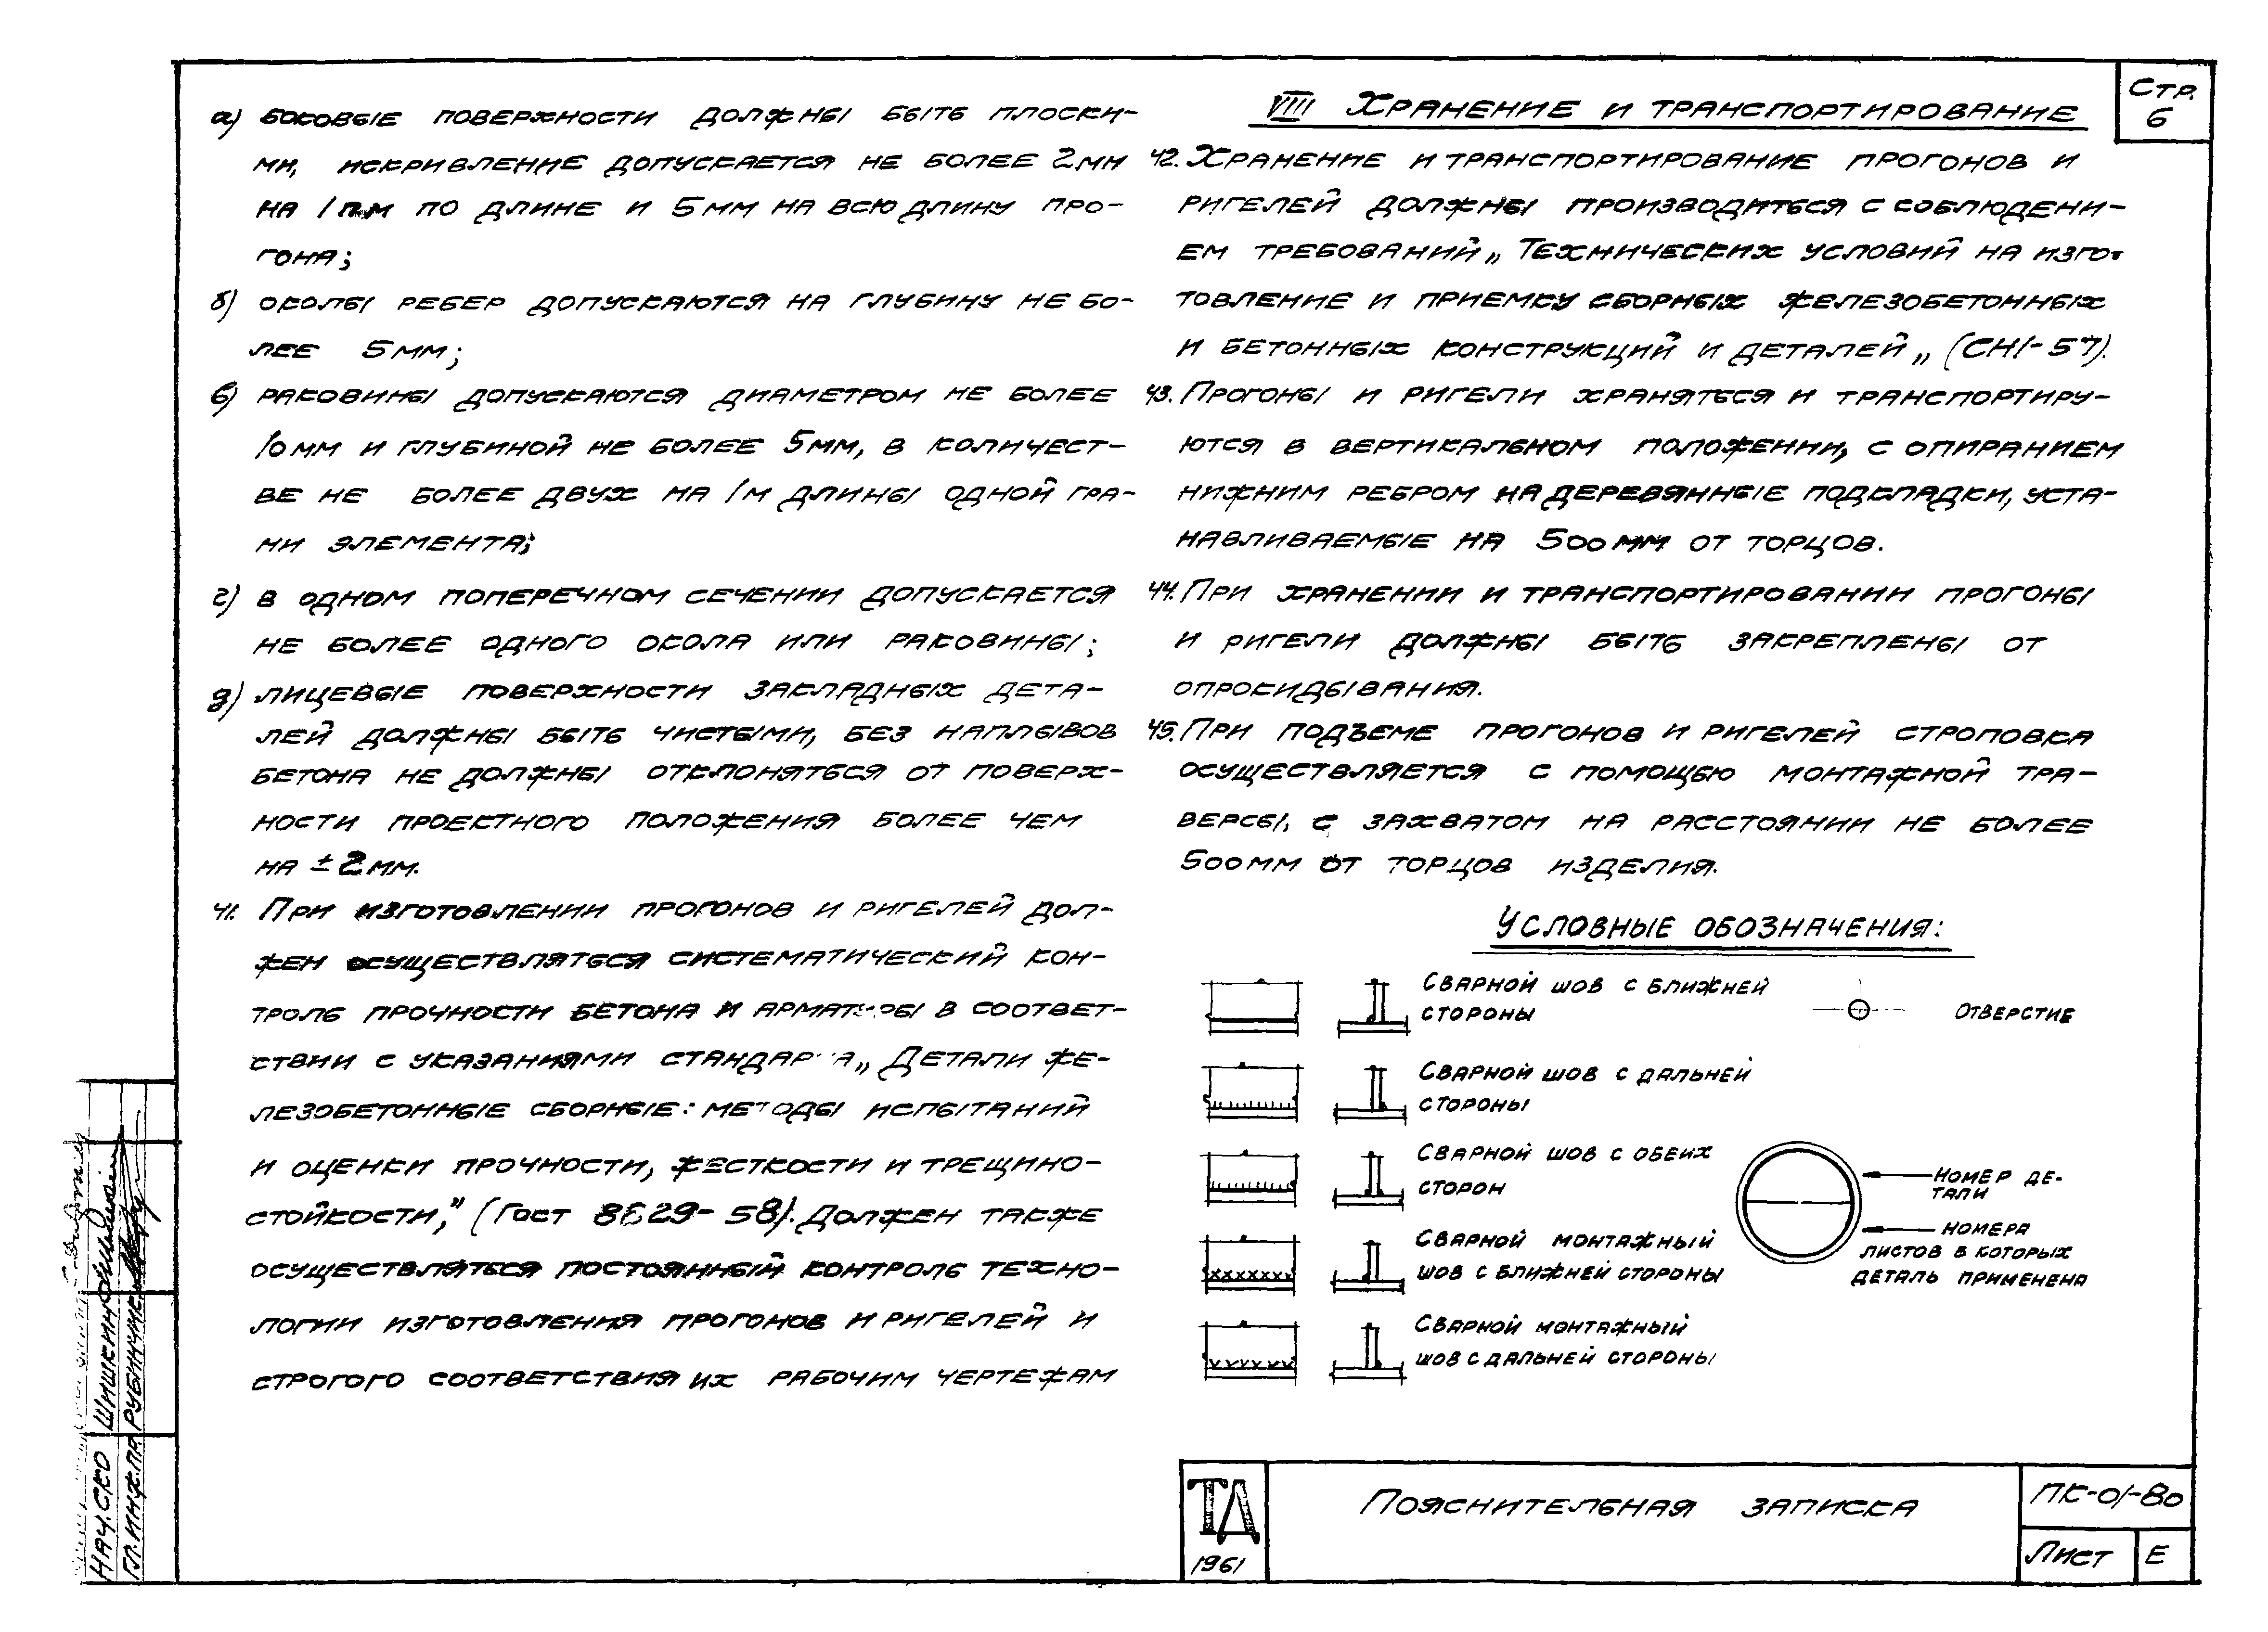 а) боковые поверхности должны быть плоски-
ми, искривление допускается не более 2мм
на 1п.м по длине и 5мм на всю длину про-
гона;
б) околы ребер допускаются на глубину не бо-
лее 5мм;
в) раковины допускаются диаметром не более
10мм и глубиной не более 5мм, в количест-
ве не более двух на 1м длины одной гра-
ни элемента;
г) в одном поперечном сечении допускается
не более одного окола или раковины;
д) лицевые поверхности закладных дета-
лей должны быть чистыми, без наплывов
бетона не должны отклоняться от поверх-
ности проектного положения более чем
на ±2мм.
41. При изготовлении прогонов и ригелей дол-
жен осуществляться систематический кон-
троль прочности бетона и арматуры в соответ-
ствии с указаниями стандарта „Детали же-
лезобетонные сборные: методы испытаний
и оценки прочности, жесткости и трещино-
стойкости," (Гост 8829-58). Должен также
осуществляться постоянный контроль техно-
логии изготовления прогонов и ригелей и
строгого соответствия их рабочим чертежам
Стр.
6
VIII Хранение и транспортирование
42. Хранение и транспортирование прогонов и
ригелей должны производиться с соблюдени-
ем требований „Технических условий на изго-
товление и приемку сборных железобетонных
и бетонных конструкций и деталей„ (СН1-57).
43. Прогоны и ригели хранятся и транспортиру-
ются в вертикальном положении, с опиранием
нижним ребром на деревянные подкладки, уста-
навливаемые на 500мм от торцов.
44. При хранении и транспортировании прогоны
и ригели должны быть закреплены от
опрокидывания.
45. При подъеме прогонов и ригелей строповка
осуществляется с помощью монтажной тра-
версы, с захватом на расстоянии не более
500мм от торцов изделия.
Условные обозначения:
Сварной шов с ближней
стороны
Отверстие
Сварной шов с дальней
стороны
Сварной шов с обеих
сторон
Сварной монтажный
шов с ближней стороны
Сварной монтажный
шов с дальней стороны
Номер де-
тали
Номера
листов в которых
деталь применена
ТД
1961
Пояснительная записка
ПК-01-80
Лист Е
Нач. СКО Шишкин
Гл. инж. пр